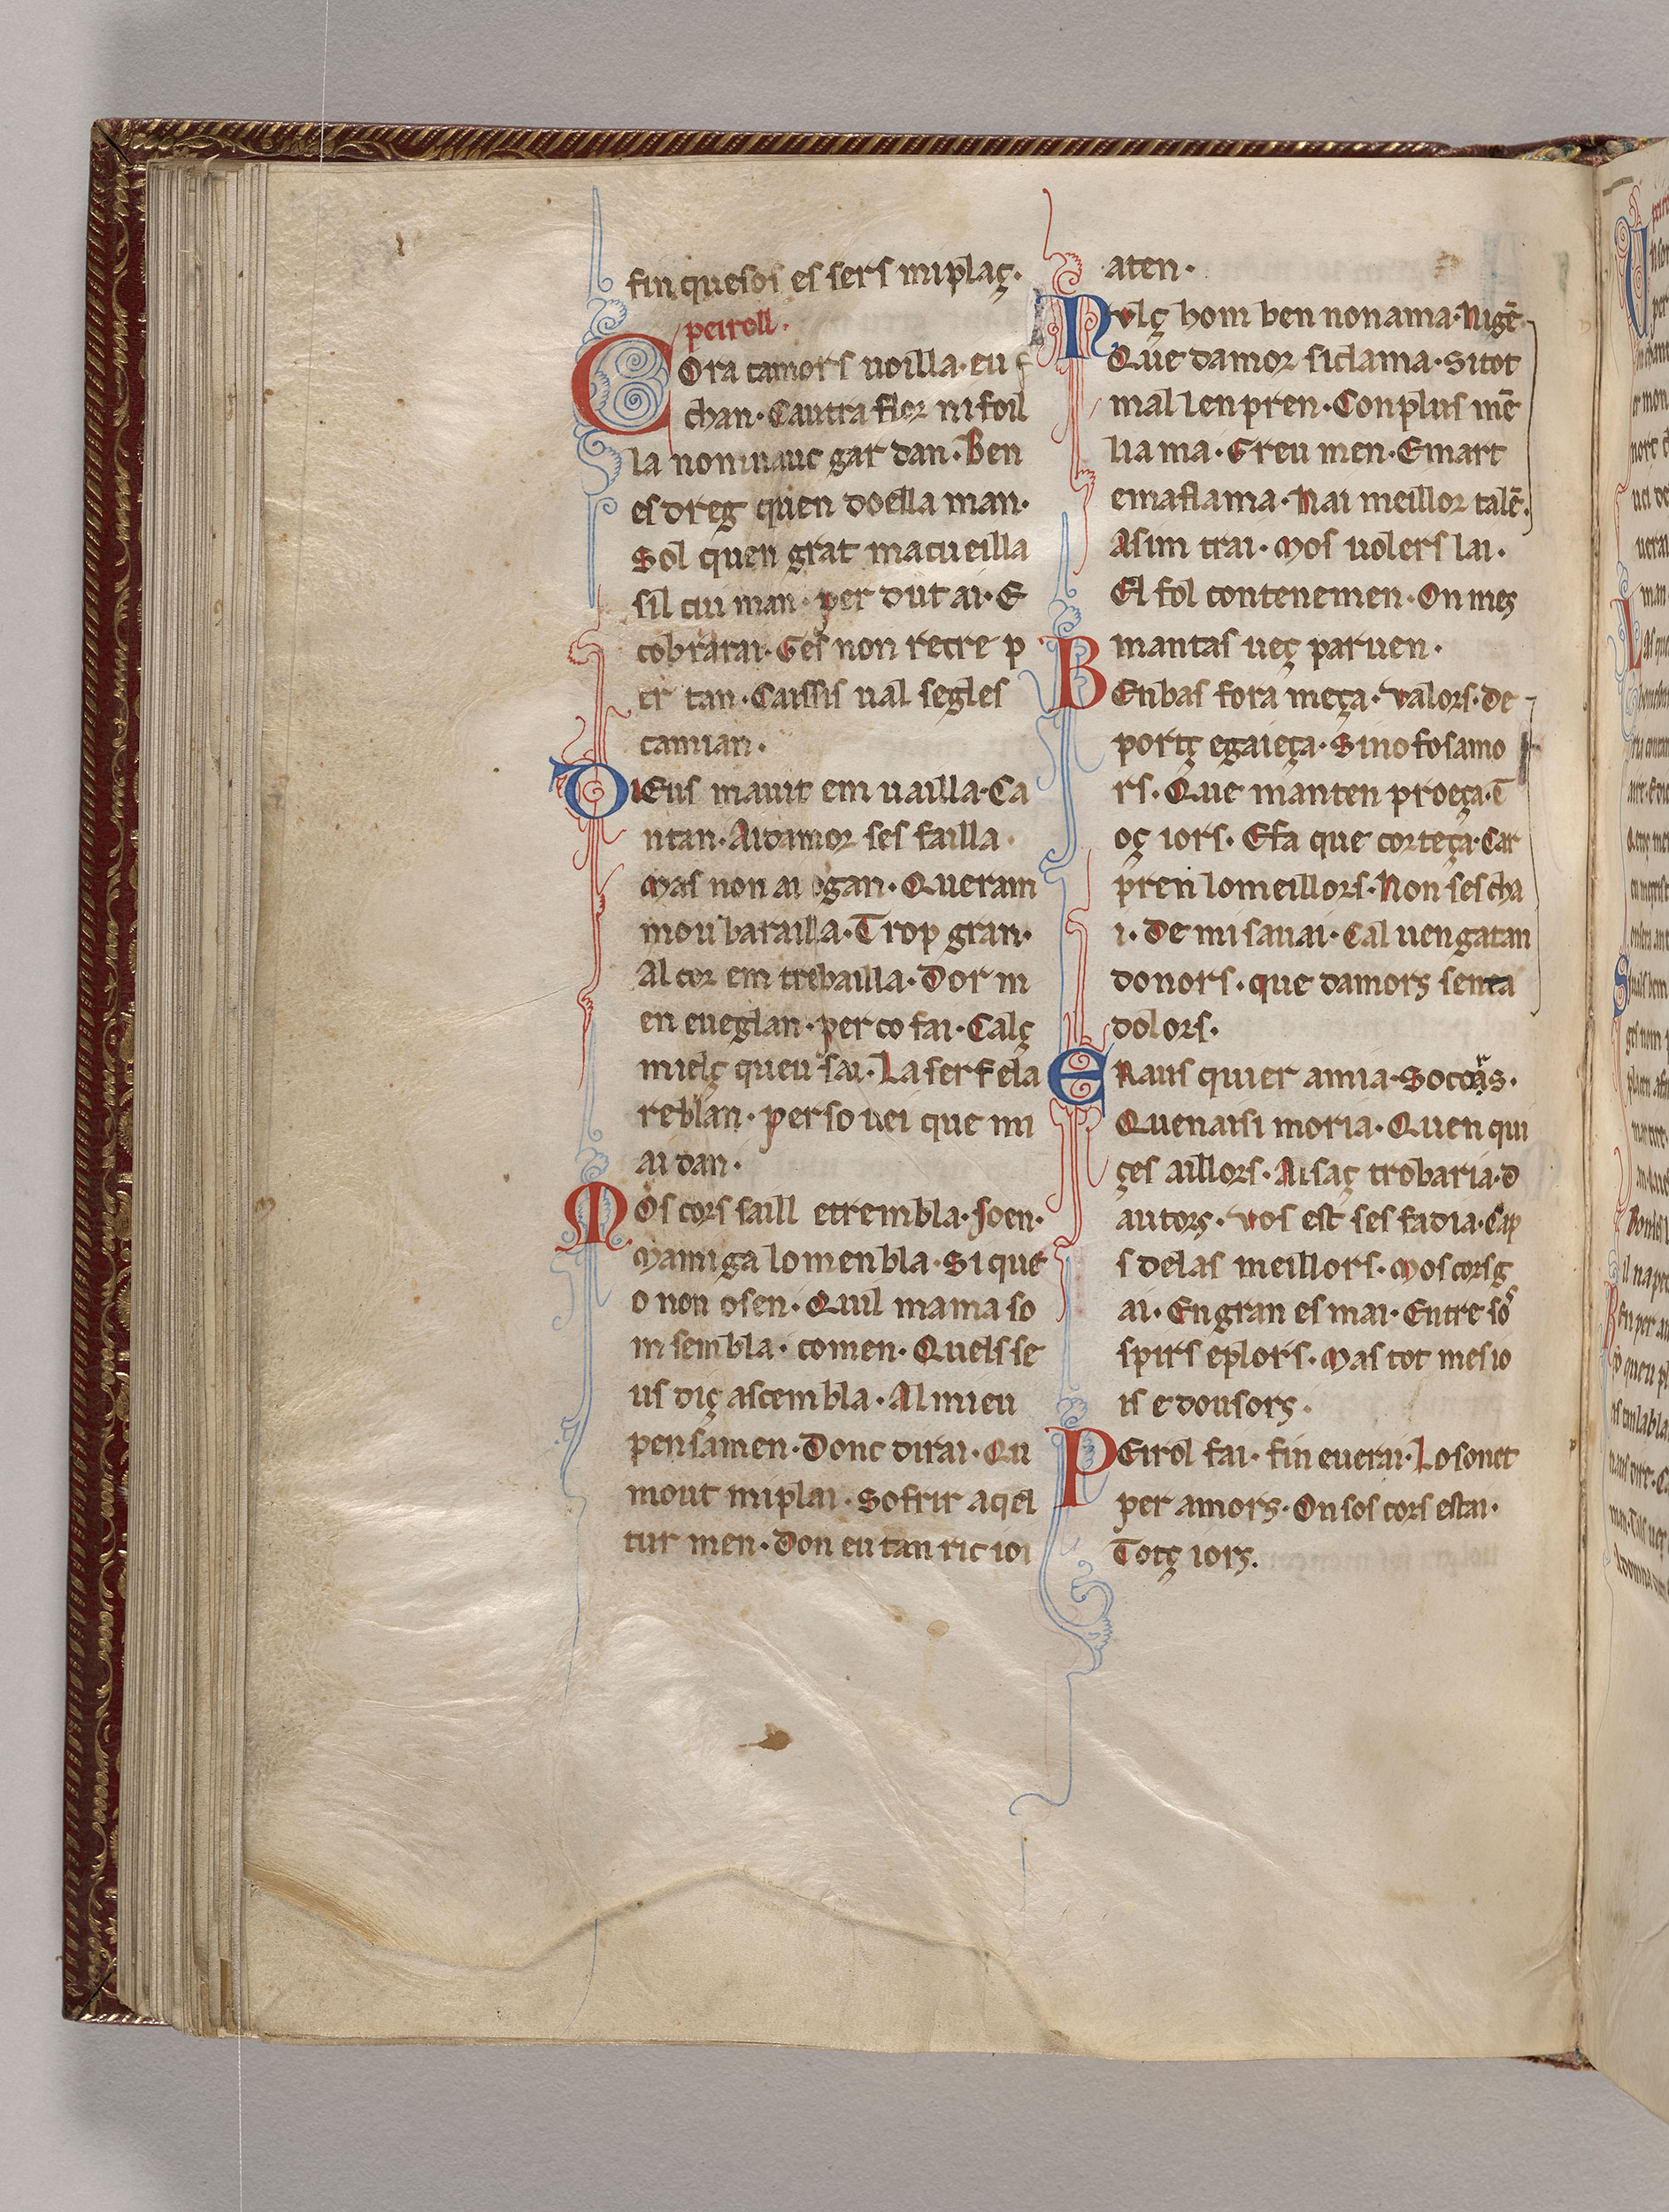 fin quesoi es sers miplaç.
peiroll.
Cora camors uoilla. eu
chan. Cautra flor ni foil
la non mauc gar dan. Ben
es dreg quen doella man.
Sol quen grat macueilla
sil cui man. per dut ai. E
cobrarai. Ges non recre p
er tan. Caissis ual segles
camian.
Dieus mauit em uailla. Ca
ntan. Aidamor ses failla.
Mas non ai ogan. Queram
mou barailla. Trop gran.
Al cor em trebailla. Dor m
en eueglan. per co fai. Calç
mielç queu sai. La ser fela
reblan. perso uei que mi
ai dan.
Mos cors saill etrembla. soen.
Mamiga lo menbla. Si que
o non osen. Quil mama so
m sembla. comen. Quels se
us diç ascembla. Al mieu
pensamen. Donc dirai. Qu
mout miplai. Sofrir aqel
tur men. Don eu tan ric ioi
aten.
Nulç hom ben non ama. Nigē
Que damor siclama. Sitot
mal len pren. Con plus mē
lia ma. Greu men. E mart
emaflama. Nai meillor talē.
Asim trai. Mos uolers lai.
El fol contenemen. On mes
mantas ueç paruen.
Benbas fora meça. Valors. de
portç egaieça. Sino fos amo
rs. Que manten proeça. t
oç iors. E fa que corteça. Car
pren lo meillors. Non ses cha
i. De mi sauai. Cal uengatan
donors. que damors senta
dolors.
Eraus quier amia. Socors.
Quenaisi moria. Quen qui
çes aillors. Aisaç trobaria. d
autors. Vos est ses fadia. Cap
s delas meillors. Mos cors g
ai. En gran esmai. Entre so
spirs eplors. Mas tot mes io
is e dousors.
Peirol fai. fin euerai. Lo sonet
per amors. On sos cors estai.
Totç iors.